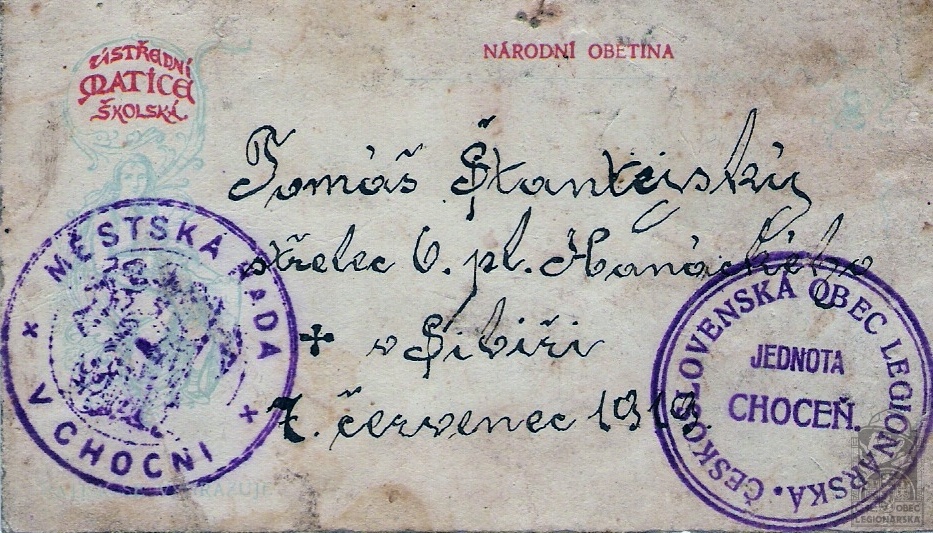 ÚSTŘEDNÍ
MATICE
ŠKOLSKÁ
NÁRODNÍ OBĚTINA
Tomáš
střelec 6. pl. Hanáckého
+ v Sibiři
7. červenec 1919.
MĚSTSKÁ RADA
V CHOCNI
ČESKOSLOVENSKÁ OBEC LEGIONÁŘSKÁ
JEDNOTA
CHOCEŇ.
OBEC
LEGIONÁŘSKÁ